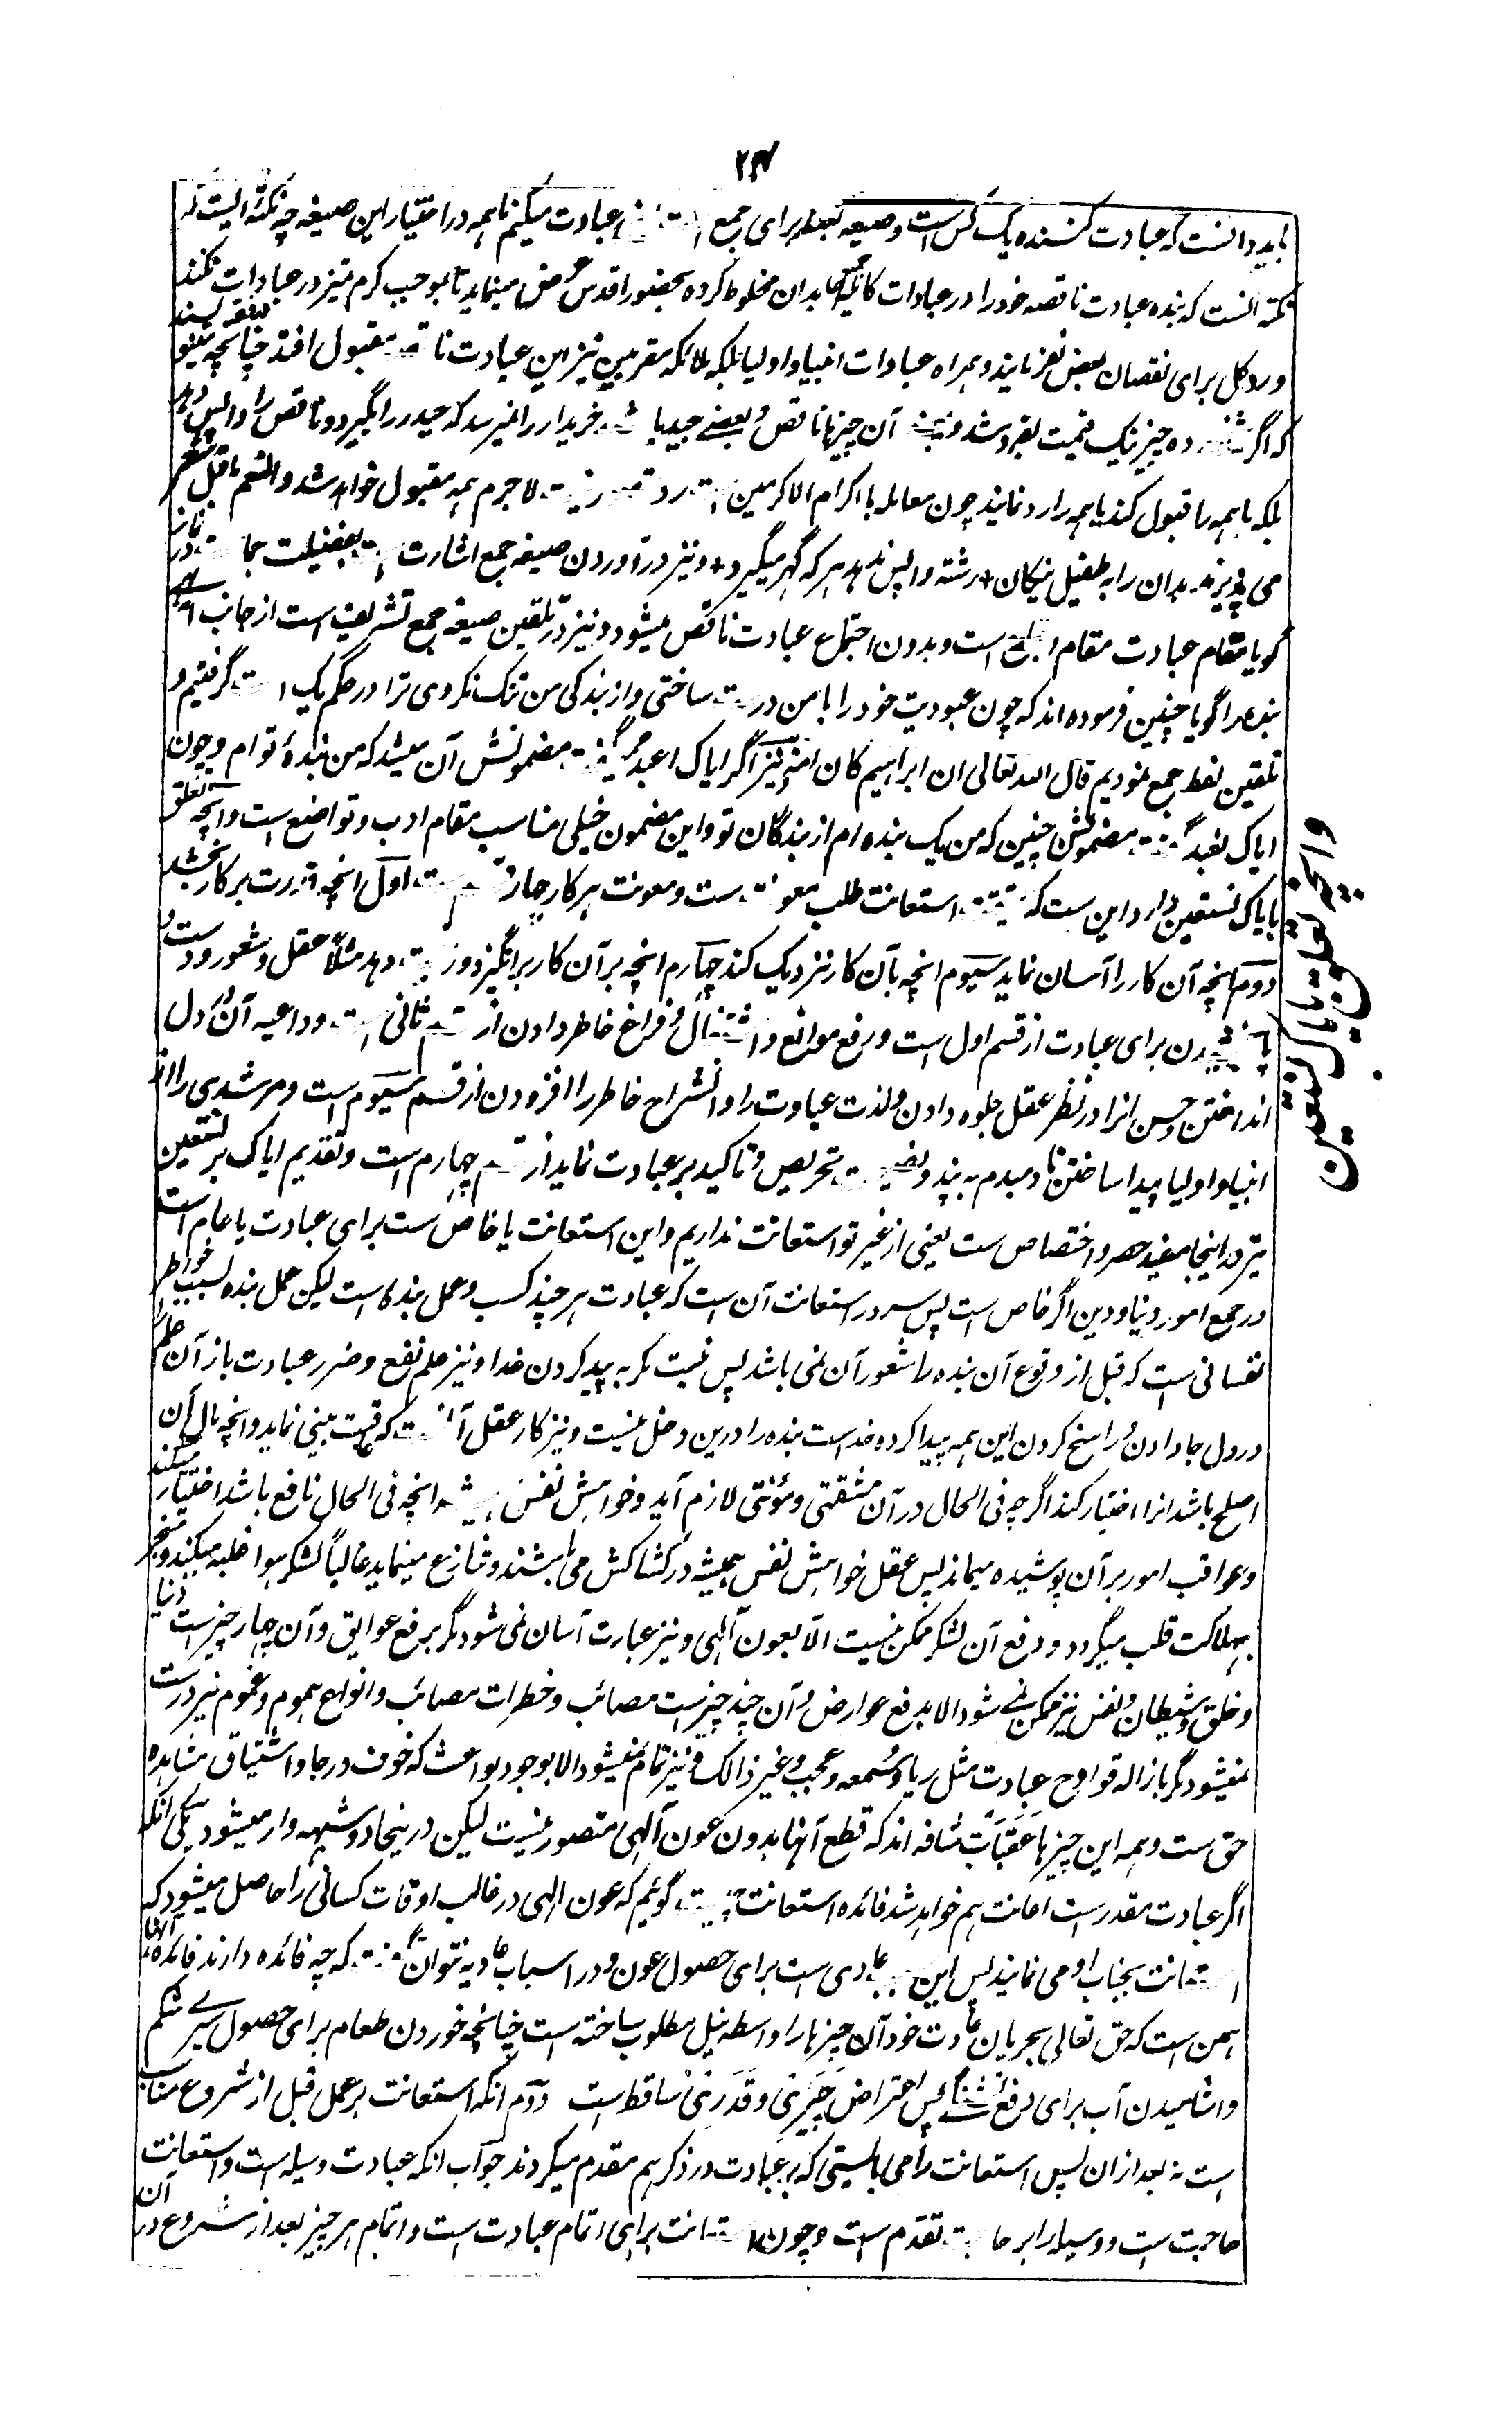 باید دانست که عبادت کننده یک کس است و صیغه نعبد برای جمع است یعنی عبادت میکنیم ما همه در اختیار این صیغه چه نکته الیست
نکته انست که بنده عبادت ناقصه خود را در عبادات کامله عابدان مخلوط کرده بحضور اقدس عرض مینماید تا بموجب کرم تمیز در عبادات نکند
و رد کل برای نقصان بعض نفرمایند و همراه عبادات انبیا و اولیا بلکه ملائکه مقربین نیز این عبادت ناقصه مقبول افتد چنانچه
که اگر ده چیز بیک قیمت بفروشد و بعضی آن چیزها ناقص و بعضے جید باشد خریدار را نمیرسد که جید را بگیرد و ناقص را واپس دهد
بلکه یا همه را قبول کند یا همه را رد نماید چون معامله با اکرم الاکرمین است رد نیست لاجرم همه مقبول خواهد شد و النعم ما قیل شعر
می پذیرند بدان را به طفیل نیکان + رشته واپس ندهد هر که گهر میگیرد + و نیز در آوردن صیغه جمع اشارت است بفضیلت جماعت در نماز
گویا مقام عبادت مقام اجتماع است و بدون اجتماع عبادت ناقص میشود و نیز در تلقین صیغه جمع تشریف است از جانب
بنده را گویا چنین فرموده اند که چون عبودیت خود را با من درست ساختی و از بندگی من ننگ نکردی ترا در حکم یک امت گرفتیم و
تلقین لفظ جمع نمودیم قال الله تعالی ان ابراهیم کان امة و نیز اگر ایاک اعبد میگفت مضمونش آن میشد که من بندۀ توام و چون
ایاک نعبد گفت مضمونش چنین که من یک بنده ام از بندگان تو و این مضمون خیلی مناسب مقام ادب و تواضع است و آنچه تعلق
بایاک نستعین دارد این ست که حقیقت استعانت طلب معونت ست و معونت هر کار چهار قسم ست اول انچه قدرت بر کار بخشد
دوم انچه آن کار را آسان نماید سیوم انچه بآن کار نزدیک کند چهارم انچه بر آن کار برانگیزد و رغبت دهد مثلاً عقل و شعور و دست و
پا بخشیدن برای عبادت از قسم اول است و رفع موانع و اشتغال و فراغ خاطر دادن از قسم ثانی است و داعیه آن در دل
انداختن و حسن انرا در نظر عقل جلوه دادن و لذت عبادت را و انشراح خاطر را افزودن از قسم سیوم است و مرشدی را از
انبیا و اولیا پیدا ساختن تا دمبدم به پند و نصیحت تحریص و تاکید بر عبادت نماید از قسم چهارم است و تقدیم ایاک بر نستعین
نیز در اینجا مفید حصر و اختصاص ست یعنی از غیر تو استعانت نداریم و این استعانت یا خاص ست برای عبادت یا عام است
در جمع امور دنیا و دین اگر خاص است پس سر در استعانت آن است که عبادت هر چند کسب و عمل بنده است لیکن عمل بنده بسبب خواطر
نفسانی ست که قبل از وقوع آن بنده را شعور آن نمی باشد پس نیست مگر به پیدا کردن خدا و نیز علم نفع و ضرر عبادت باز آن علم را
در دل جا دادن و راسخ کردن این همه پیدا کرده خداست بنده را درین دخل نیست و نیز کار عقل آنست که عاقبت بینی نماید و انچه مآل آن
اصلح باشد انرا اختیار کند اگر چه فی الحال در آن مشقتی و مؤنتی لازم آید و خواهش نفس همیشه انچه فی الحال نافع باشد اختیار میکند
و عواقب امور بر آن پوشیده میماند پس عقل و خواهش نفس همیشه در کشاکش می باشند و تنازع مینماید غالباً لشکر هوا غلبه میکند و منجر
بهلاکت قلب میگردد و دفع آن لشکر ممکن نیست الا بعون الهی و نیز عبادت آسان نمی شود مگر برفع عوایق و آن چهار چیز ست دنیا
و خلق و شیطان و نفس نیز ممکن نمے شود الا بدفع عوارض و آن چند چیز ست مصائب و خطرات مصائب و انواع هموم و غموم نیز درست
نمیشود مگر بازاله قوادح عبادت مثل ریا و سمعه و عجب و غیر ذالک و نیز تمام نمیشود الا بوجود بواعث که خوف و رجا و اشتیاق مشاهده
حق ست و همه این چیزها عقبات شاقه اند که قطع آنها بدون عون الهی متصور نیست لیکن در ینجا دو شبهه وارد میشود یکی انکه
اگر عبادت مقدر ست اعانت هم خواهد شد فائده استعانت چیست گوئیم که عون الهی در غالب اوقات کسانی را حاصل میشود که
استعانت بجناب او می نمایند پس این سبب عادی است برای حصول عون و در اسباب عادیه نتوان گفت که چه فائده دارند فائده آنها
همین است که حق تعالی بجریان عادت خود آن چیزها را واسطه نیل مطلوب ساخته است چنانچه خوردن طعام برای حصول سیرے شکم
و اشامیدن آب برای رفع تشنگی پس اعتراض جبری و قدری ساقط است دوم انکه استعانت بر عمل قبل از شروع مناسب
است نه بعد از ان پس استعانت را می بایستی که بر عبادت در ذکر هم مقدم میکردند جواب انکه عبادت وسیله است و استعانت
حاجت است و وسیله را بر حاجت تقدم است و چون استعانت برای اتمام عبادت است و اتمام هر چیز بعد از شروع در آن
وانچه تعلق بایاک نستعین